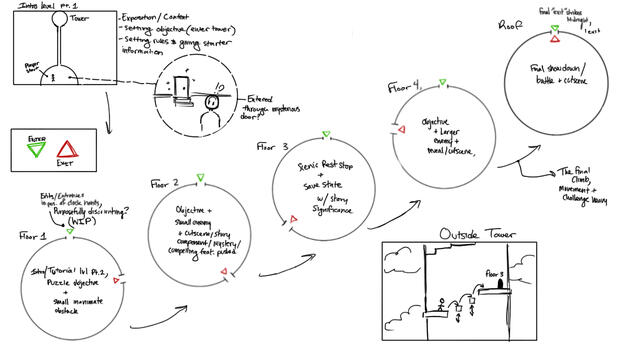 Intro level pt. 1
Tower
Player
Start
- Exposition/Context
- Setting objective (enter tower)
- Setting rules & giving starter
information
!?
→Entered
through mysterious
door?
ENTER
EXIT
Exits/Entrances
in pos. of clock hands,
Purposefully disorienting?
(WIP)
Floor 1
Intro/Tutorial lvl Pt.2,
Puzzle objective
+
small inanimate
obstacle
Floor 2
Objective +
Small enemy
+ cutscene/story
component/mystery/
compelling feat. pushed
Floor 3
Scenic Rest Stop
+
Save State
w/ Story
Significance
Floor 4,
Objective
+ Larger
enemy +
reveal/cutscene,
The Final
Climb,
Movement +
Challenge Heavy
Roof
Final "exit" strikes
Midnight,
1 exit
Final showdown/
battle + cutscene
Outside Tower
Floor 3